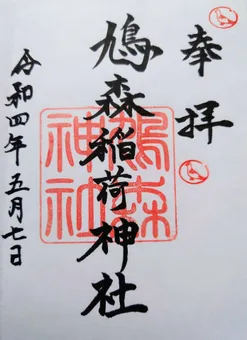 奉拝
鳩森稲荷神社
令和四年五月七日
鳩森
神社